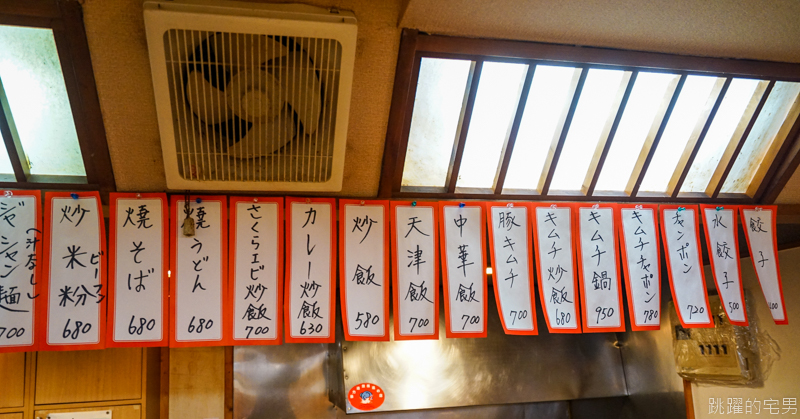 餃子
400
水餃子
500
チャンポン
720
キムチチャンポン
780
キムチ鍋
950
キムチ炒飯
680
豚キムチ
700
中華飯
700
天津飯
700
炒飯
580
カレー炒飯
630
さくらエビ炒飯
700
焼うどん
680
焼そば
680
炒米粉
ビーフン
680
ジャージャン麺
(汁なし)
700
跳躍的宅男